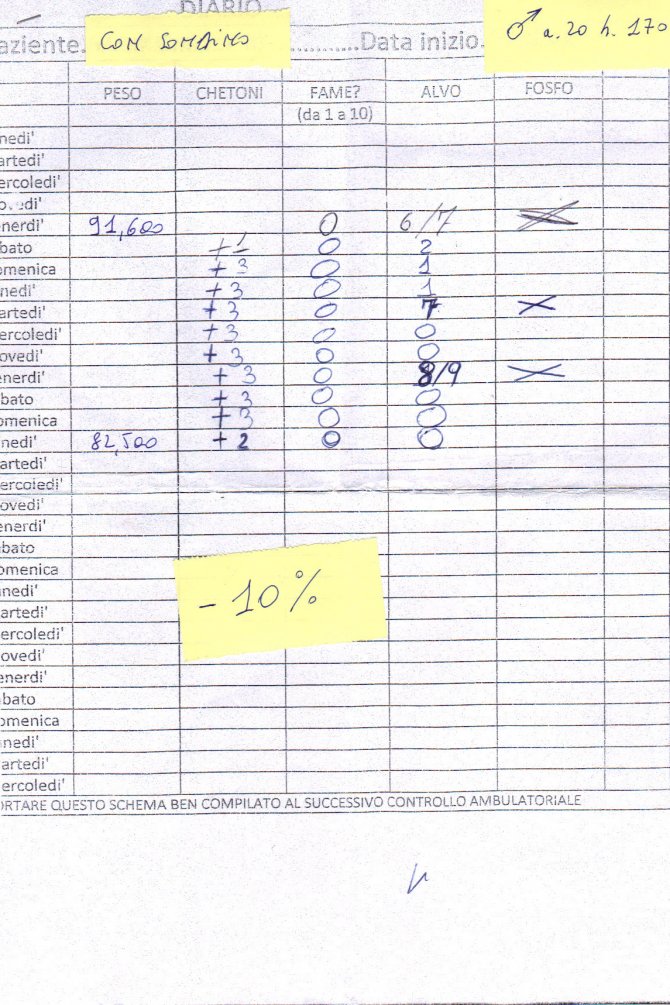 DIARIO
aziente. CON SONDINO ............Data inizio. ♂ a. 20 h. 170
PESO CHETONI FAME? ALVO FOSFO
(da 1 a 10)
nedi'
artedi'
ercoledi'
o..edi'
enerdi' 91,600 0 6/7 X
bato +1 0 2
omenica +3 0 1
nedi' +3 0 1
artedi' +3 0 7 X
ercoledi' +3 0 0
ovedi' +3 0 0
enerdi' +3 0 8/9 X
bato +3 0 0
omenica +3 0 0
nedi' 82,500 +2 0 0
artedi'
ercoledi'
ovedi'
enerdi'
bato
omenica
nedi'
artedi'
ercoledi'
ovedi'
enerdi'
bato
omenica
nedi'
artedi'
ercoledi'
- 10%
ORTARE QUESTO SCHEMA BEN COMPILATO AL SUCCESSIVO CONTROLLO AMBULATORIALE